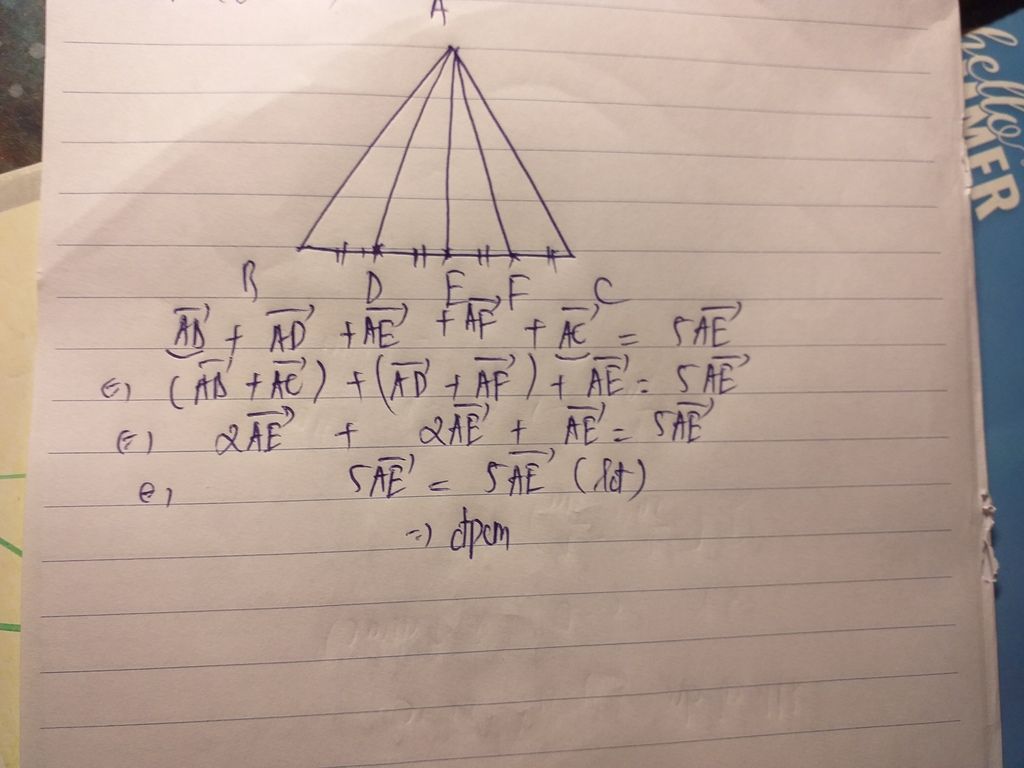 A
B D E F C
\overrightarrow{AB} + \overrightarrow{AD} + \overrightarrow{AE} + \overrightarrow{AF} + \overrightarrow{AC} = 5\overrightarrow{AE}
(=) (\overrightarrow{AB} + \overrightarrow{AC}) + (\overrightarrow{AD} + \overrightarrow{AF}) + \overrightarrow{AE} = 5\overrightarrow{AE}
(=) 2\overrightarrow{AE} + 2\overrightarrow{AE} + \overrightarrow{AE} = 5\overrightarrow{AE}
(=) 5\overrightarrow{AE} = 5\overrightarrow{AE}
=) đpcm
hello